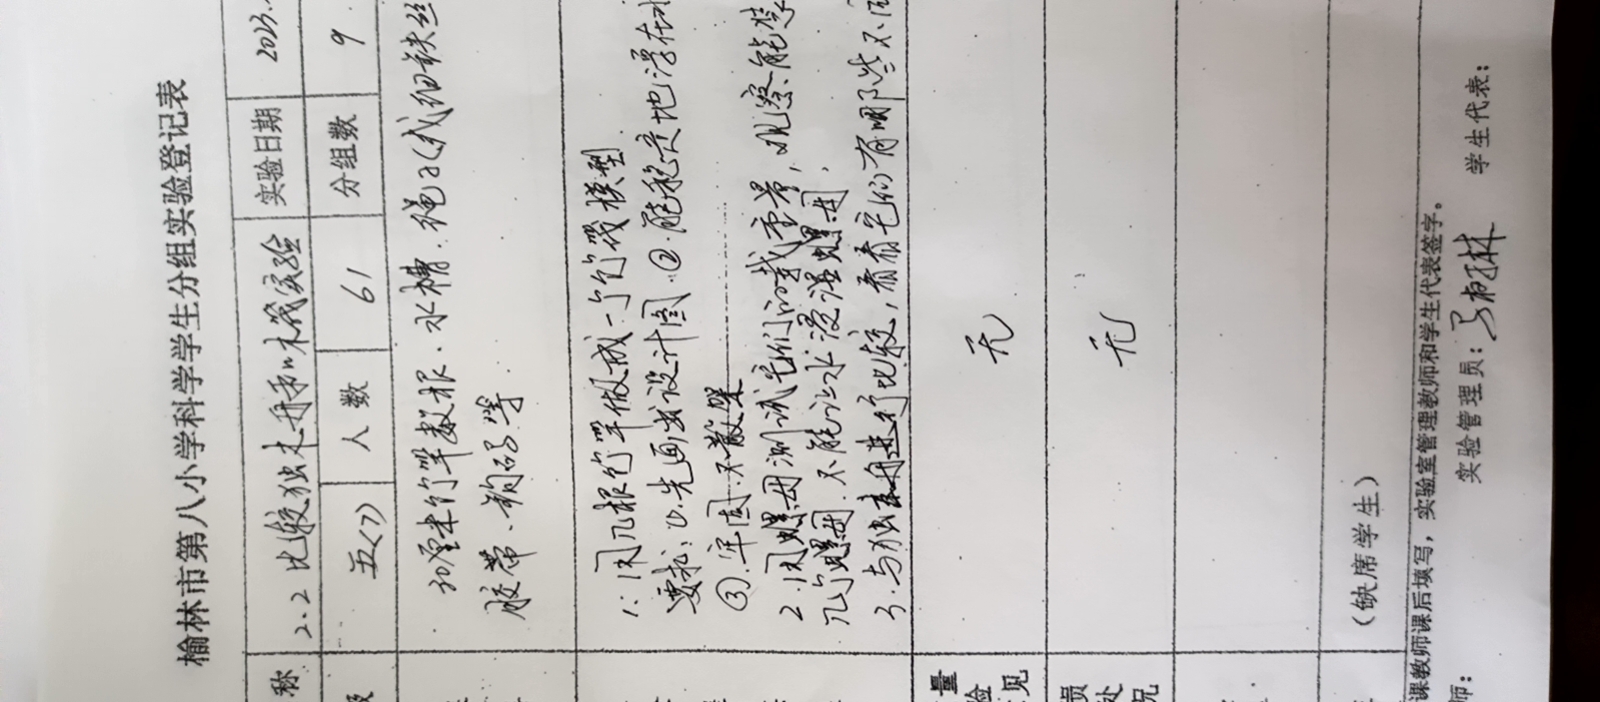 榆林市第八小学科学学生分组实验登记表
称 2.2 比较独木舟和木筏实验 实验日期 2023.
级 五(7) 人数 61 分组数 9
30厘米竹竿数根、水槽、绳子(或细铁丝
胶带、钩码等
1.用几根竹竿做成一个竹筏模型
要求:①.先画出设计图 ②.能稳定地浮在水
③.牢固.不散架
2.用螺母测试它们的载重量,观察能装
几个螺母.不能让水浸湿螺母.
3.与独木舟进行比较,看看它们有哪些不同
量
验
见 无
员
处
况 无
(缺席学生)
课教师课后填写,实验室管理教师和学生代表签字。
师: 实验管理员: 学生代表: